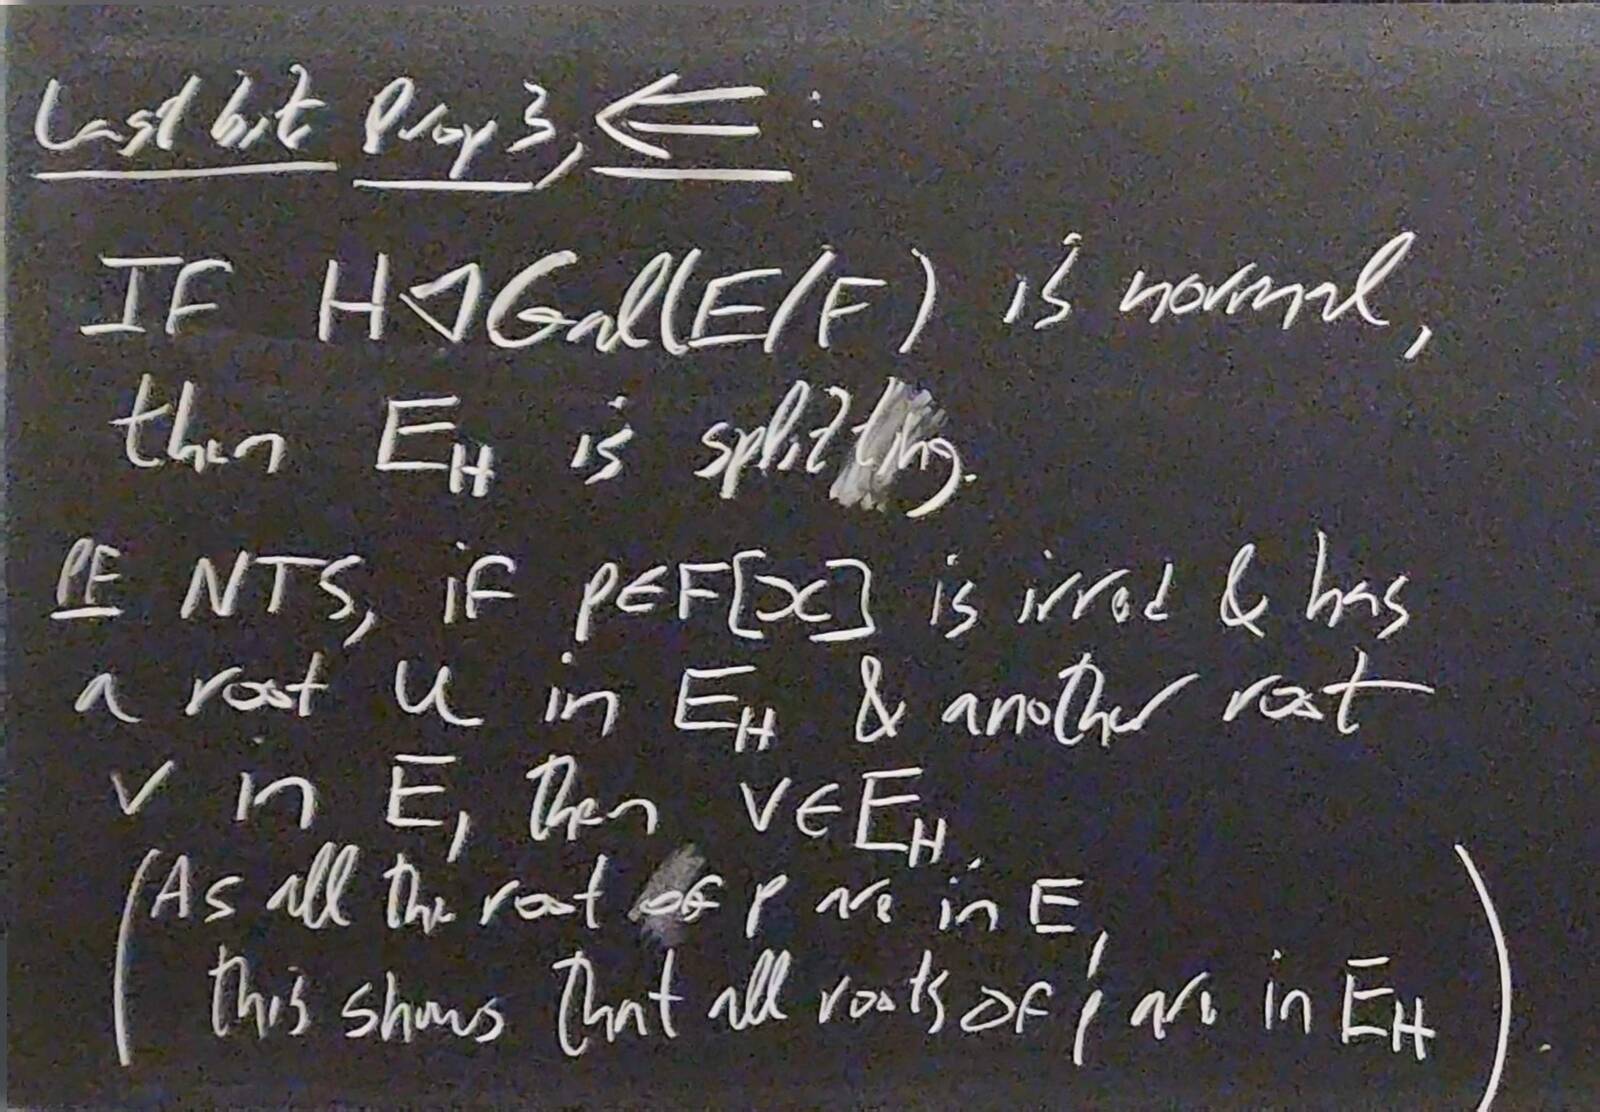 Last bit Prop 3, ⇐ :
IF H ◁ Gal(E/F) is normal,
then E_H is splitting.
PF NTS, iF p∈F[x] is irred & has
a root u in E_H & another root
v in E, then v∈E_H.
(As all the root oF p are in E,
this shows that all roots oF p are in E_H).